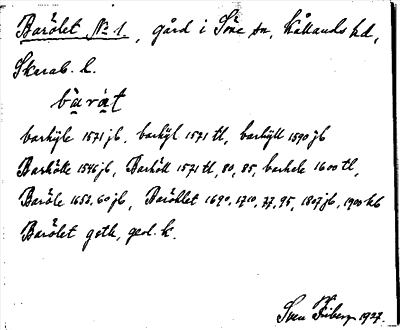 Barölet № 1, gård i Söne sn, Kållands hd,
Skarab. l.
bàrat
barhÿle 1571 jb, barhÿl 1571 tl, barhÿll 1590 jb
Barhölle 1546 jb, Barhöll 1571 tl, 80, 85, barhele 1600 tl,
Baröle 1653, 60 jb, Baröhlet 1690, 1710, 77, 95, 1807 jb, 1900 kb
Barölet getk, geol. k.
Sven Friberg 1927.